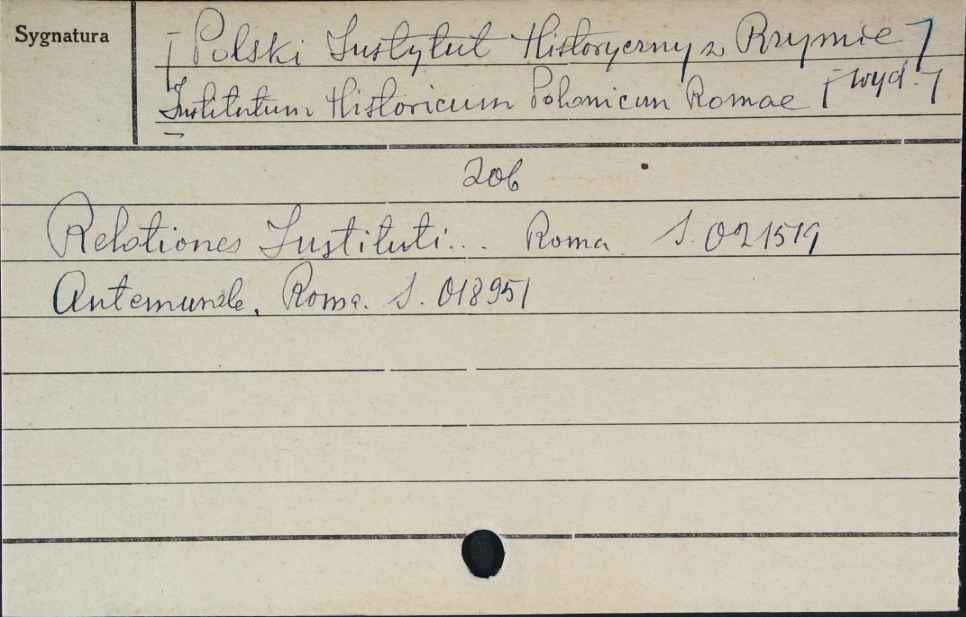 Sygnatura
[Polski Instytut Historyczny w Rzymie]
Institutum Historicum Polonicum Romae [wyd.]
zob
Relationes Instituti... Roma S. 021519
Antemurale. Roma. S. 018951